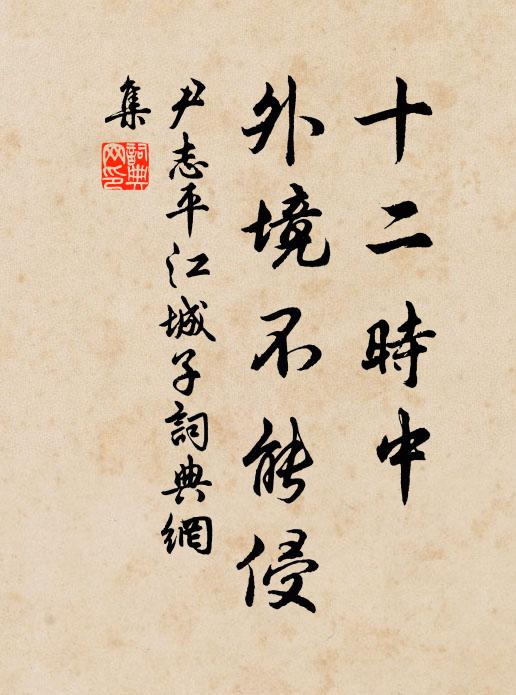 十二時中
外境不能侵
尹志平江城子詞典網
集
詞典
网印